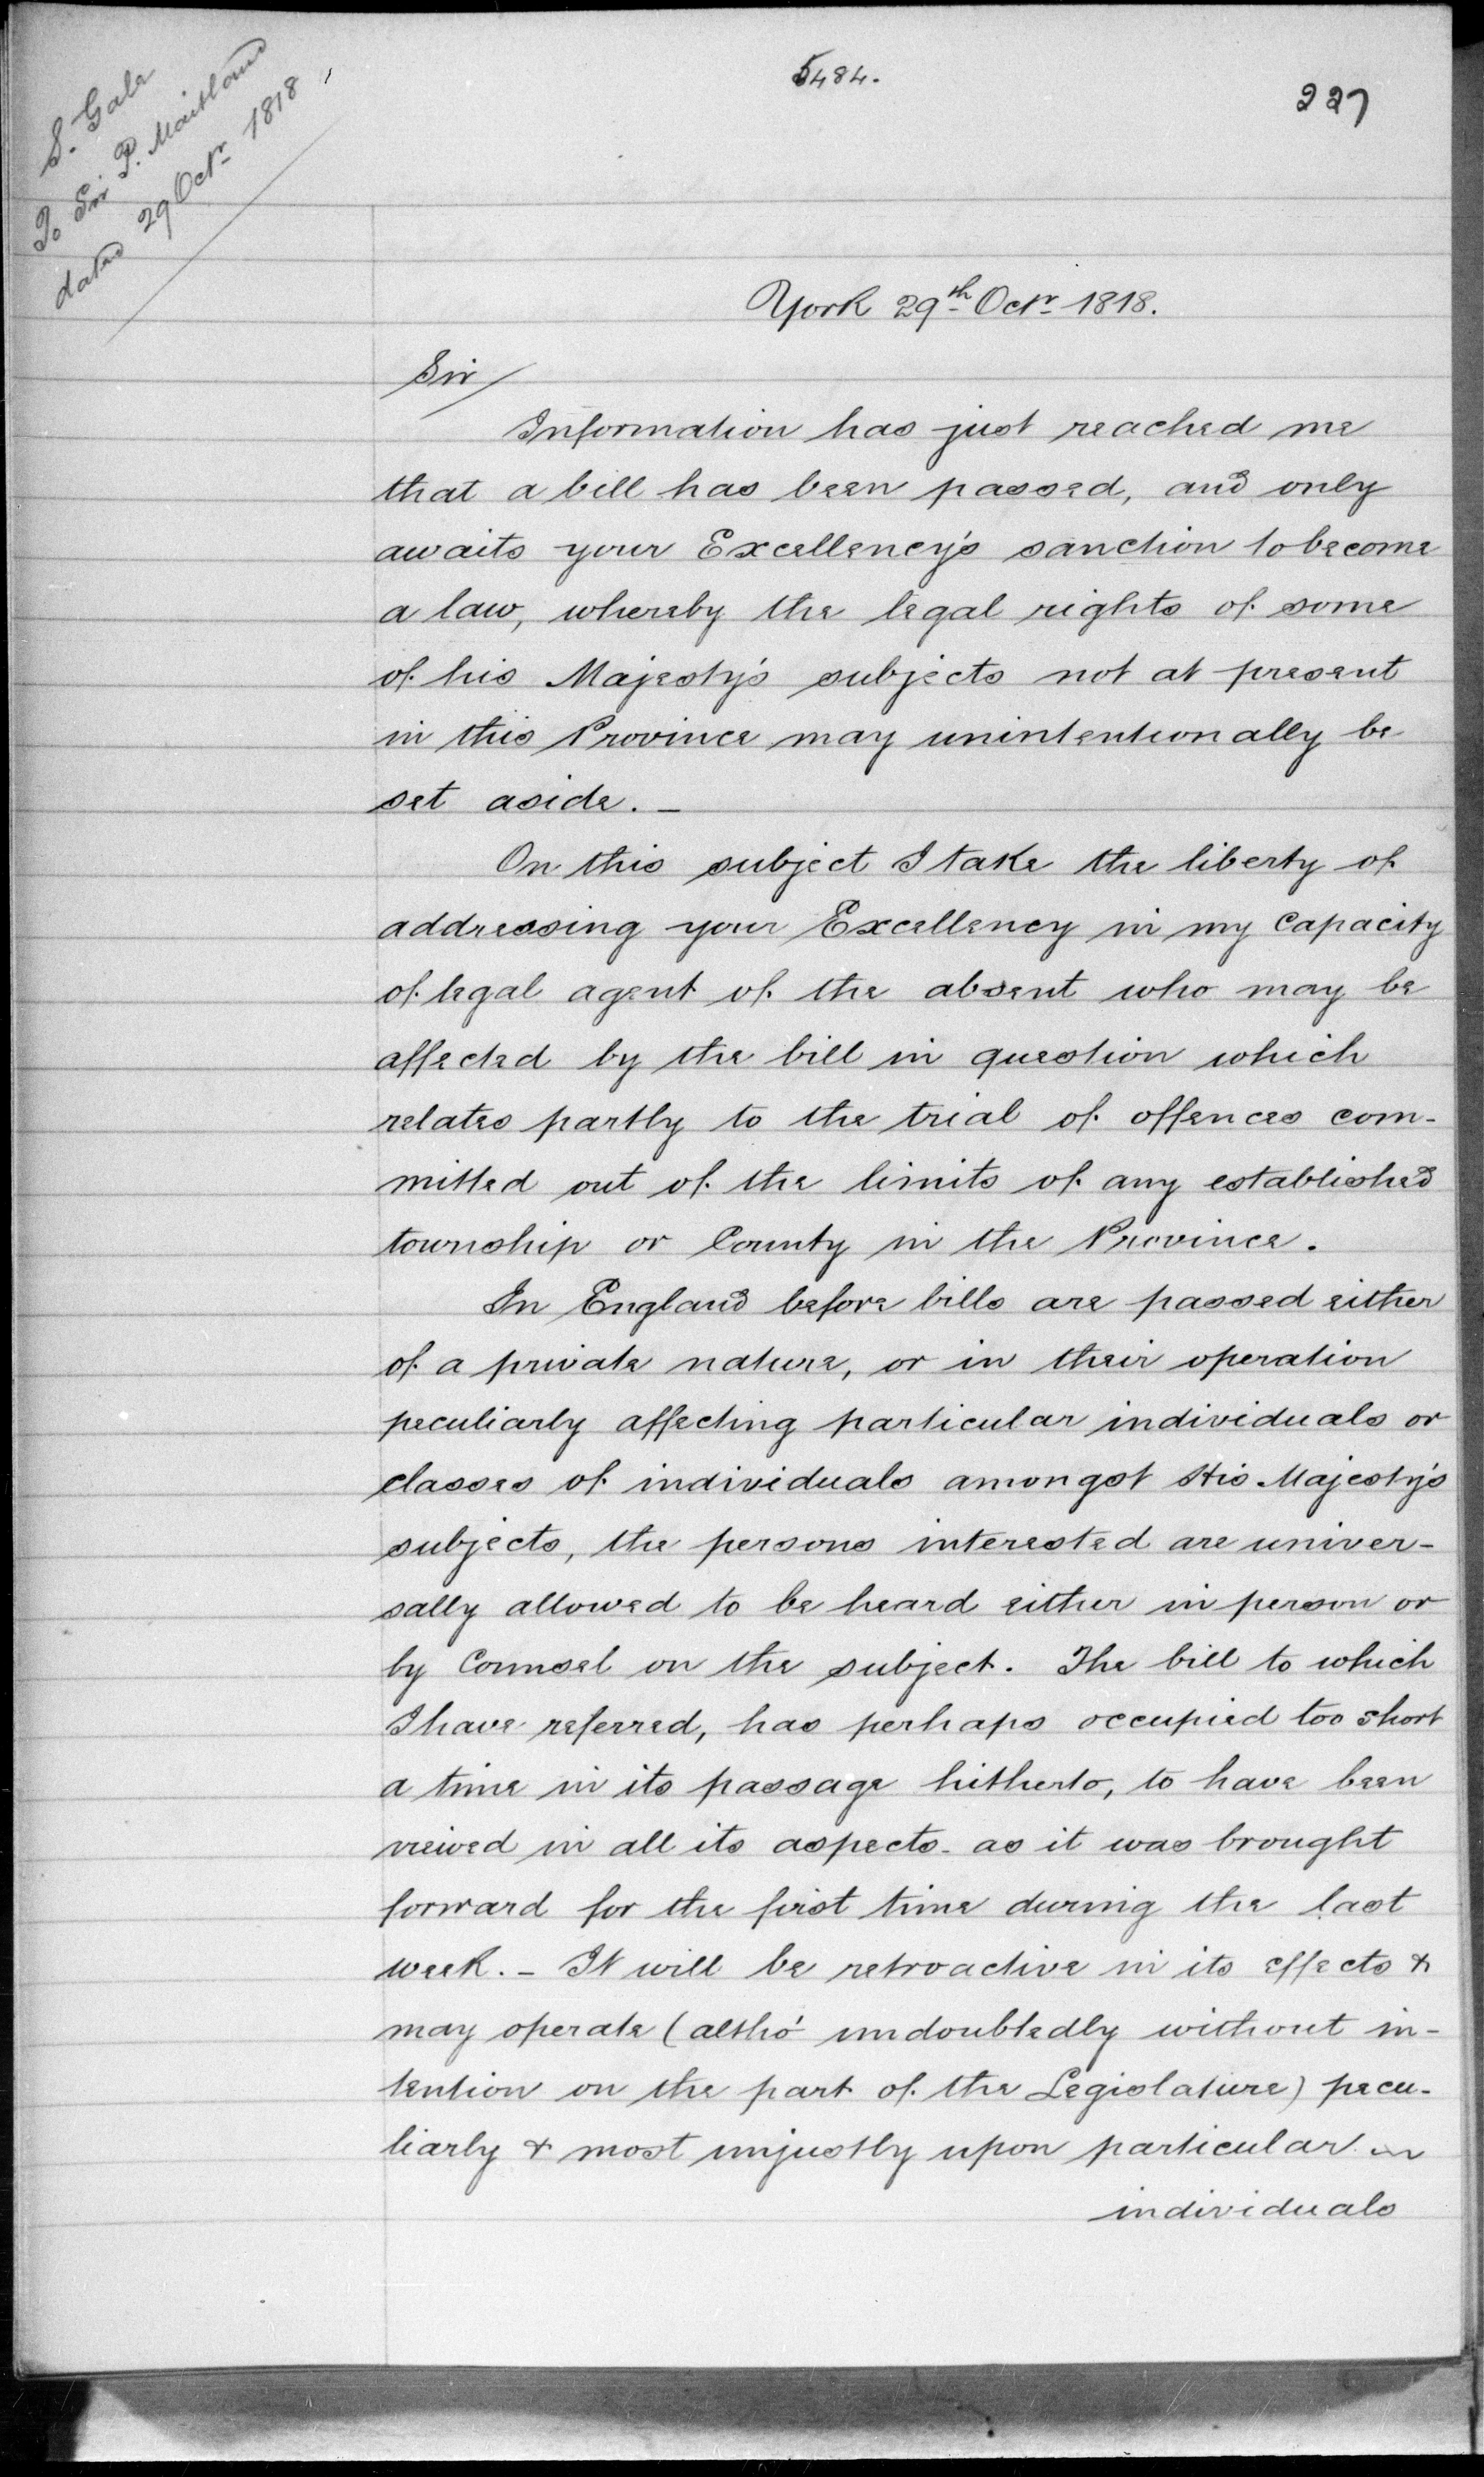 S. Gale
To Sir P. Maitland
dated 29 Octr 1818
5484.
227
York 29th Octr 1818.
Sir/
Information has just reached me
that a bill has been passed, and only
awaits your Excellency's sanction to become
a law, whereby the legal rights of some
of his Majesty's subjects not at present
in this Province may unintentionally be
set aside. —
On this subject I take the liberty of
addressing your Excellency in my Capacity
of legal agent of the absent who may be
affected by the bill in question which
relates partly to the trial of offences com-
mitted out of the limits of any established
township or County in the Province.
In England before bills are passed either
of a private nature, or in their operation
peculiarly affecting particular individuals or
classes of individuals amongst His Majesty's
subjects, the persons interested are univer-
sally allowed to be heard either in person or
by Counsel on the subject. The bill to which
I have referred, has perhaps occupied too short
a time in its passage hitherto, to have been
viewed in all its aspects - as it was brought
forward for the first time during the last
week. - It will be retroactive in its effects &
may operate (altho' undoubtedly without in-
tention on the part of the Legislature) pecu-
liarly & most unjustly upon particular
individuals